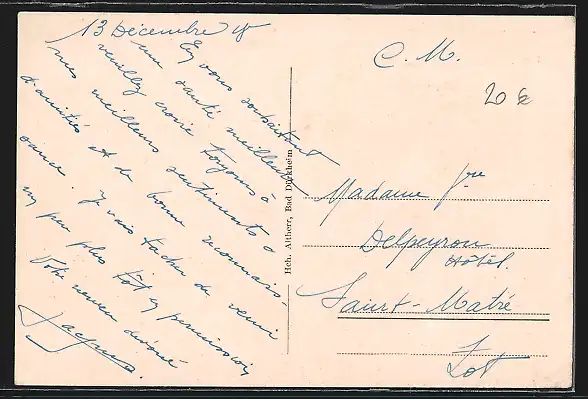 13 Décembre 18
En vous souhaitant
une santé meilleure
veuillez croire toujours à
mes meilleurs sentiments
d'amitiés et de bonne reconnais-
sance. J'y vais tacher de venir
un peu plus tôt en permission
Votre neveu dévoué
Jacques.
C. M.
20 €
Hch. Altherr, Bad Dürkheim
Madame Jne
Delpeyrou
Hôtel.
Saint-Matré
Lot